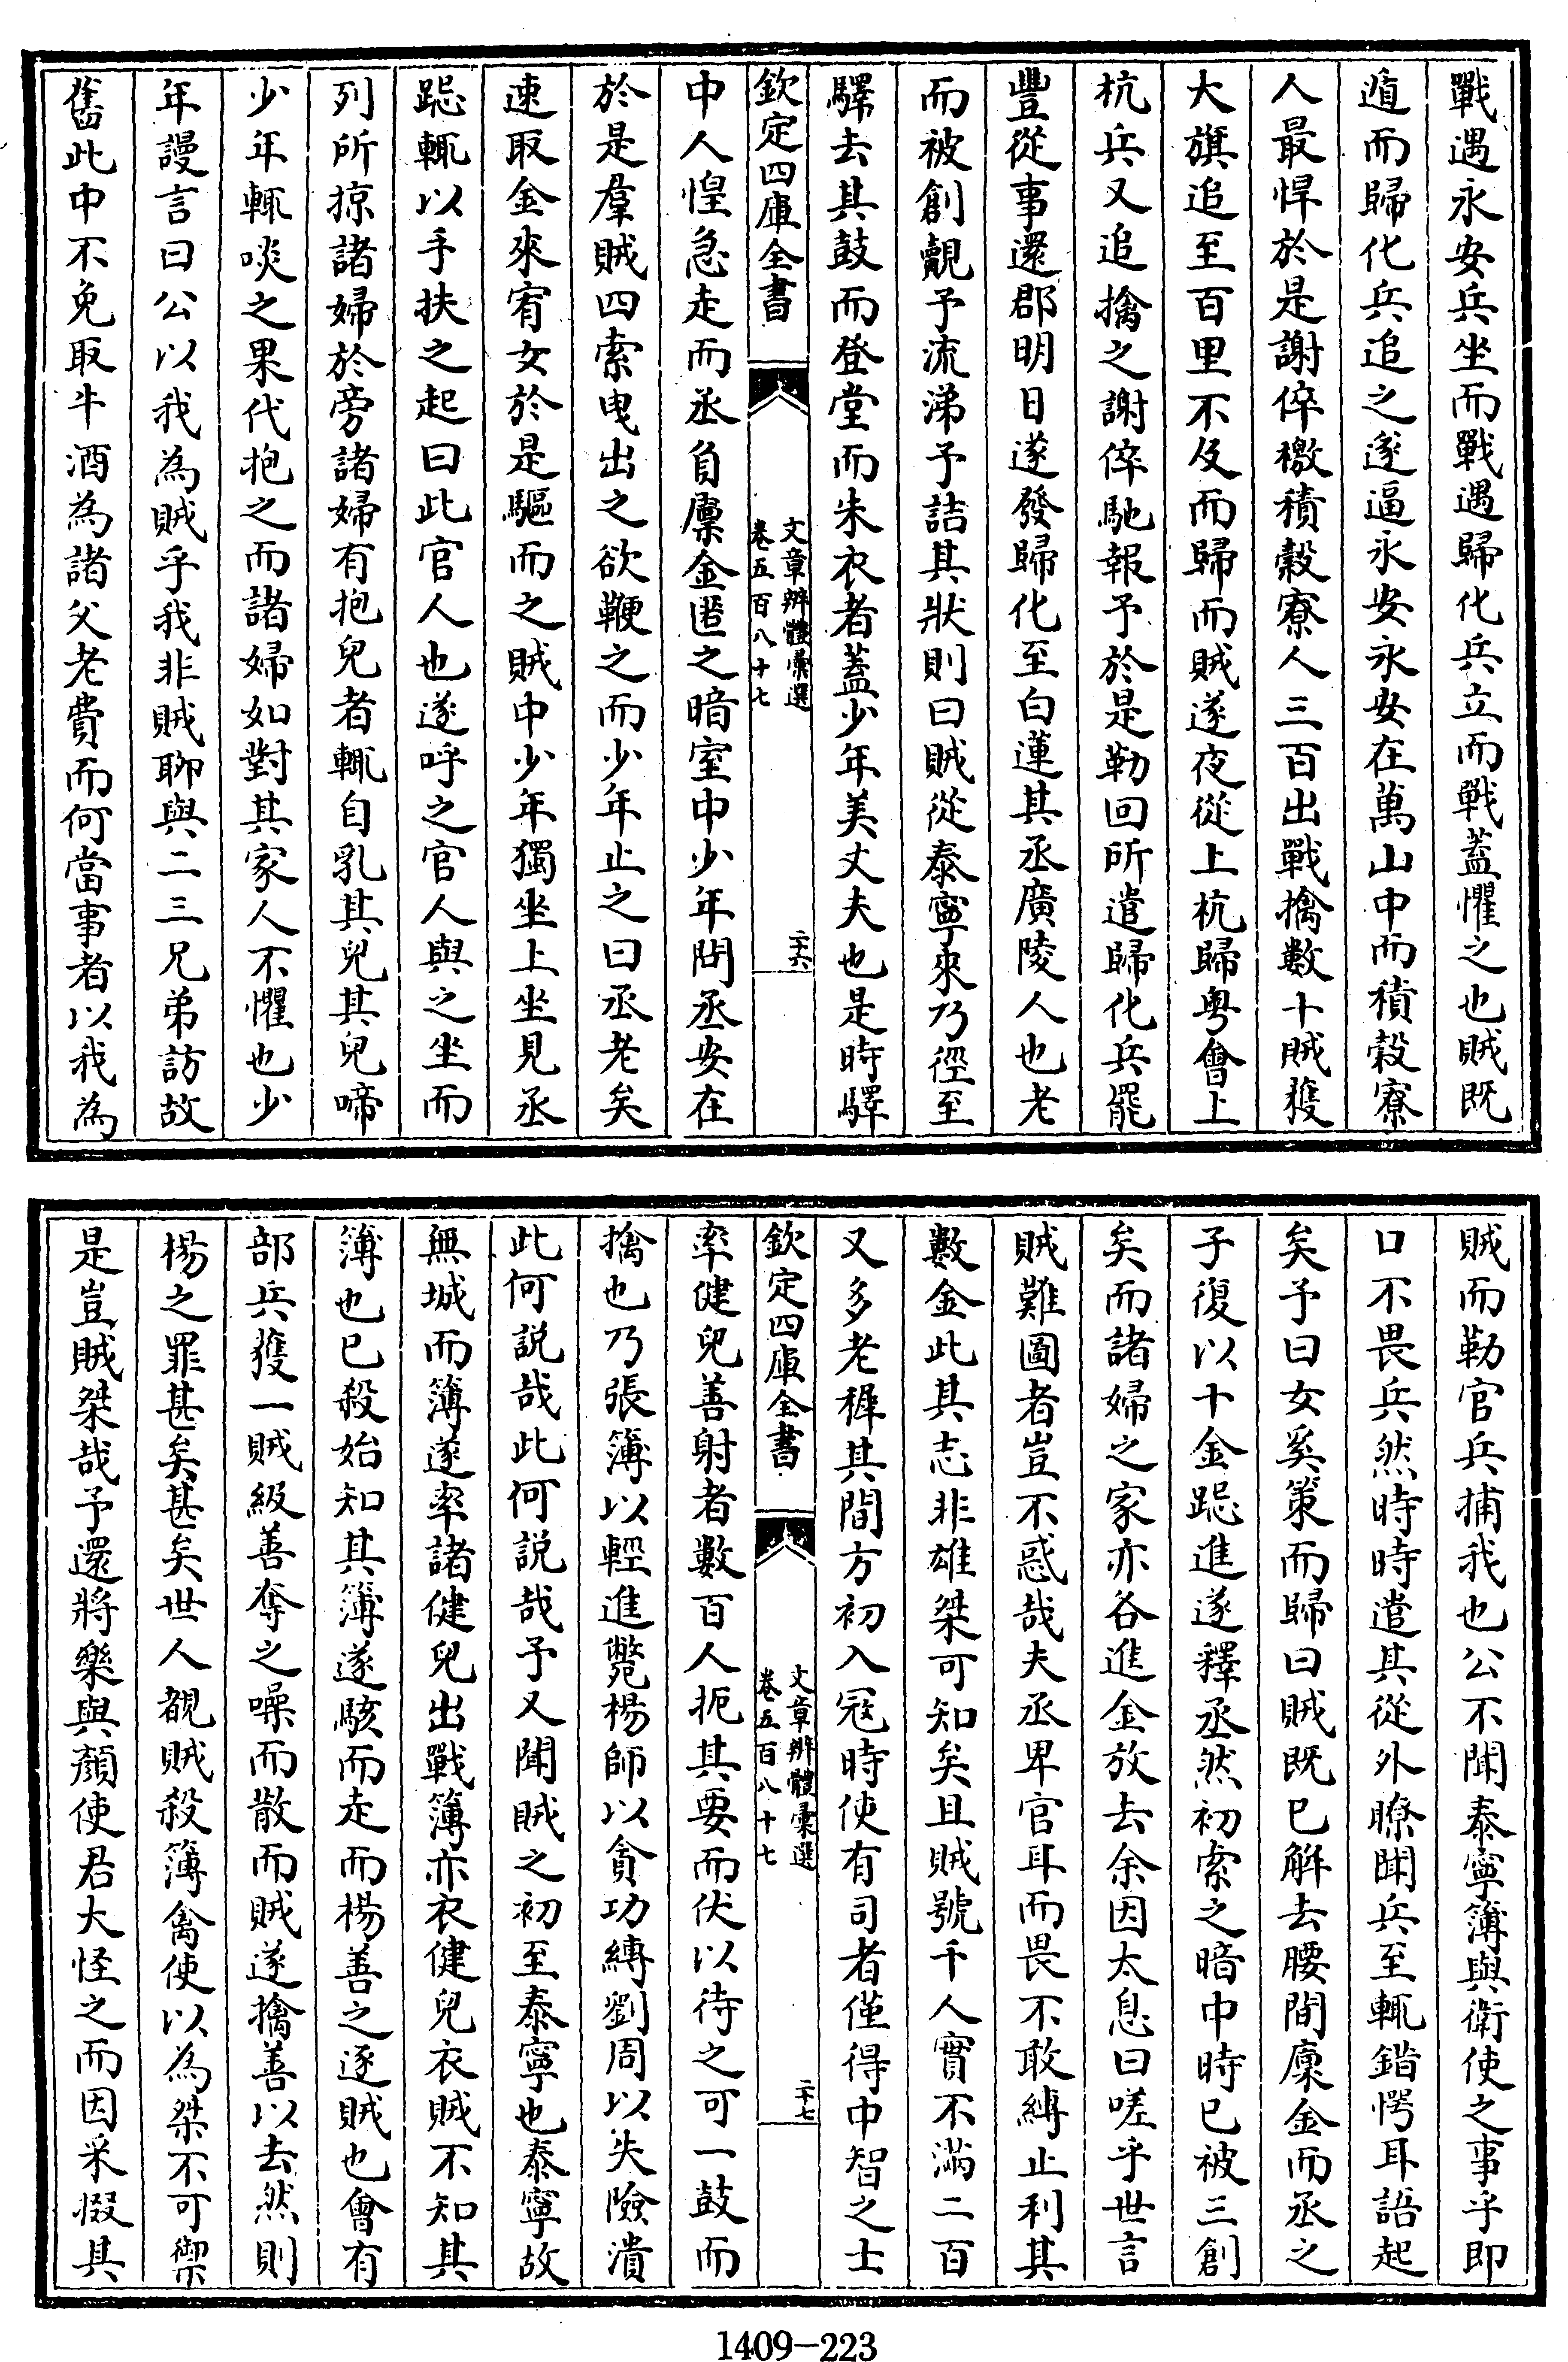 戰遇永安兵坐而戰遇歸化兵立而戰蓋懼之也賊既
遁而歸化兵追之遂逼永安永安在萬山中而積穀寮
人最悍於是謝倅檄積穀寮人三百出戰擒數十賊獲
大旗追至百里不及而歸而賊遂夜從上杭歸粤會上
杭兵又追擒之謝倅馳報予於是勒回所遣歸化兵罷
豐從事還郡明日遂發歸化至白蓮其丞廣陵人也老
而被創覿予流涕予詰其狀則曰賊從泰寧來乃徑至
驛去其鼓而登堂而朱衣者蓋少年美丈夫也是時驛
欽定四庫全書
文章辨體彙選
卷五百八十七
二十六
中人惶急走而丞自廩金匿之暗室中少年問丞安在
於是羣賊四索曳出之欲鞭之而少年止之曰丞老矣
速取金來宥女於是驅而之賊中少年獨坐上坐見丞
跽輒以手扶之起曰此官人也遂呼之官人與之坐而
列所掠諸婦於旁諸婦有抱兒者輒自乳其兒其兒啼
少年輒啖之果代抱之而諸婦如對其家人不懼也少
年謾言曰公以我為賊乎我非賊聊與二三兄弟訪故
舊此中不免取牛酒為諸父老費而何當事者以我為
賊而勒官兵捕我也公不聞泰寧簿與衛使之事乎即
口不畏兵然時時遣其從外瞭聞兵至輒錯愕耳語起
矣予曰女奚策而歸曰賊既已解去腰間廩金而丞之
子復以十金跽進遂釋丞然初索之暗中時已被三創
矣而諸婦之家亦各進金放去余因太息曰嗟乎世言
賊難圖者豈不惑哉夫丞卑官耳而畏不敢縛止利其
數金此其志非雄桀可知矣且賊號千人實不滿二百
又多老穉其間方初入冦時使有司者僅得中智之士
欽定四庫全書
文章辨體彙選
卷五百八十七
二十七
率健兒善射者數百人扼其要而伏以待之可一鼓而
擒也乃張簿以輕進斃楊師以貪功縛劉周以失險潰
此何説哉此何説哉予又聞賊之初至泰寧也泰寧故
無城而簿遂率諸健兒出戰簿亦衣健兒衣賊不知其
簿也已殺始知其簿遂駭而走而楊善之逐賊也會有
部兵獲一賊級善奪之噪而散而賊遂擒善以去然則
楊之罪甚矣甚矣世人覩賊殺簿禽使以為桀不可禦
是豈賊桀哉予還將樂與顏使君大怪之而因采掇其
1409-223